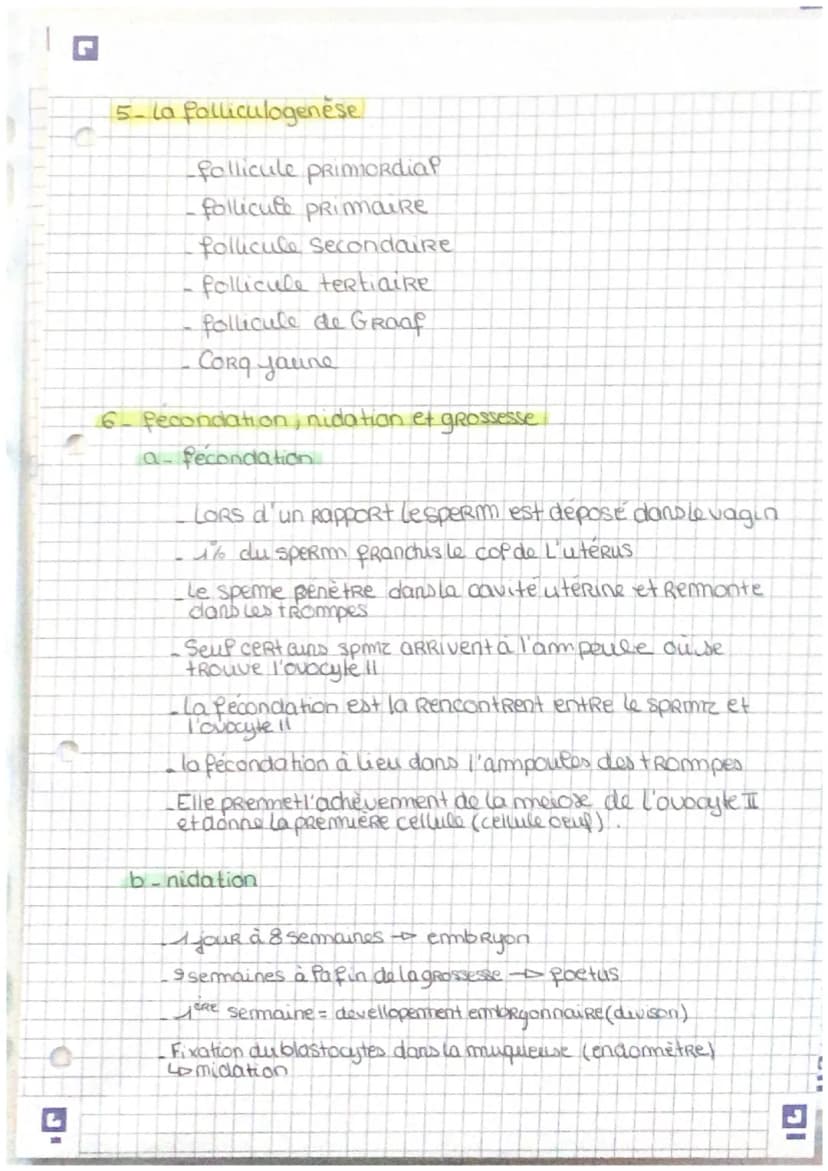 5- La folliculogenèse
- follicule primordial
- follicule primaire
- follicule secondaire
- follicule tertiaire
- follicule de Graaf
- Corq jaune
6- fécondation, nidation et grossesse
a- fécondation
- Lors d'un rapport le sperm est déposé dans le vagin
- 1% du sperm franchis le col de l'utérus
- Le sperme pénètre dans la cavité utérine et remonte
dans les trompes
- Seul certains spmz arrivent à l'ampoule où se
trouve l'ovocyte II
- La fécondation est la rencontrent entre le sprmz et
l'ovocyte II
- la fécondation à lieu dans l'ampoules des trompes
- Elle prermet l'achèvement de la meiose de l'ovocyte II
et donne la première cellule (cellule oeuf).
b- nidation
- 1 jour à 8 semaines → embryon
- 9 semaines à la fin de la grossesse → foetus
- 1ère semaine = devellopement embryonnaire (divison)
- Fixation du blastocytes dans la muqueuse (endomètre)
↳ nidation